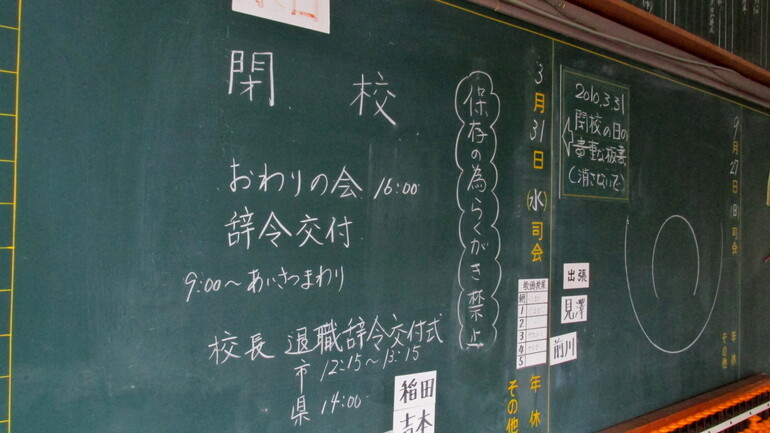 閉校
おわりの会 16:00
辞令交付
9:00～あいさつまわり
校長 退職辞令交付式
市 12:15～13:15
県 14:00
稲田
吉本
保存の為らくがき禁止
3月31日(水)司会
1
2
3
4
5
年休
その他
2010.3.31
閉校の日の
貴重な板書
(消さないで)
出張
見澤
前川
9月27日(日)司会
年休
その他